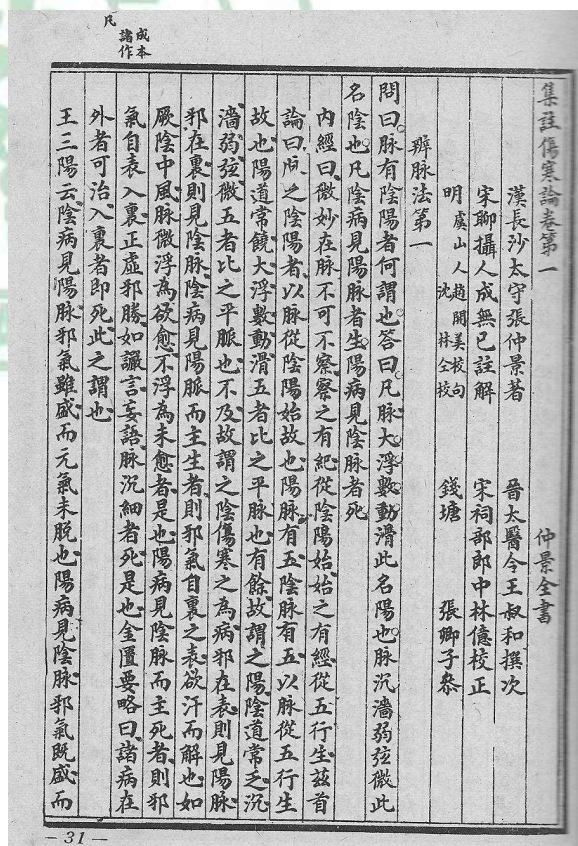 凡
諸作
成本
集註傷寒論卷第一
仲景全書
漢長沙太守張仲景著
晉太醫令王叔和撰次
宋聊攝人成無已註解
宋祠部郎中林億校正
明虞山人趙開美校句
沈林仝校
錢塘張卿子叅
辨脉法第一
問曰脉有陰陽者何謂也答曰凡脉大浮數動滑此名陽也脉沉濇弱弦微此
名陰也凡陰病見陽脉者生陽病見陰脉者死
内經曰微妙在脉不可不察察之有紀從陰陽始始之有經從五行生兹首
論曰脉之陰陽者以脉從陰陽始故也陽脉有五陰脉有五以脉從五行生
故也陽道常饒大浮數動滑五者比之平脉也有餘故謂之陽陰道常乏沉
濇弱弦微五者比之平脈也不及故謂之陰傷寒之為病邪在表則見陽脉
邪在裏則見陰脉陰病見陽脈而主生者則邪氣自裏之表欲汗而解也如
厥陰中風脉微浮為欲愈不浮為未愈者是也陽病見陰脉而主死者則邪
氣自表入裏正虛邪勝如讝言妄語脉沉細者死是也金匱要略曰諸病在
外者可治入裏者即死此之謂也
王三陽云陰病見陽脉邪氣雖盛而元氣未脱也陽病見陰脉邪氣既盛而
—31—